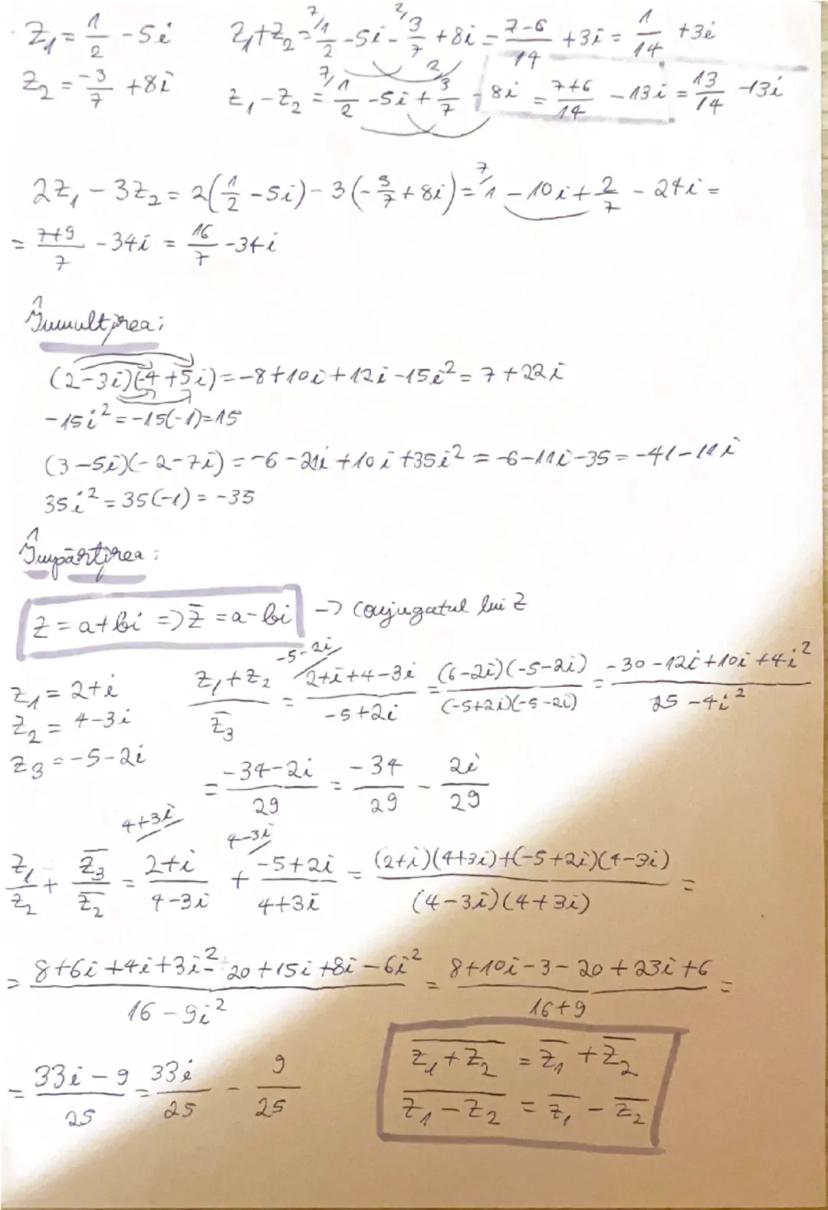 z₁ = 1/2 - 5i    z₁+z₂ = ⁷⁾1/2 - 5i - ²⁾3/7 + 8i = (7-6)/14 + 3i = 1/14 + 3i
z₂ = -3/7 + 8i    z₁ - z₂ = ⁷⁾1/2 - 5i + ²⁾3/7 - 8i = (7+6)/14 - 13i = 13/14 - 13i
2z₁ - 3z₂ = 2(1/2 - 5i) - 3(-3/7 + 8i) = ⁷⁾1 - 10i + 9/7 - 24i =
= (7+9)/7 - 34i = 16/7 - 34i
Înmulțirea:
(2-3i)(-4+5i) = -8+10i+12i-15i² = 7+22i
-15i² = -15(-1) = 15
(3-5i)(-2-7i) = -6-21i+10i+35i² = -6-11i-35 = -41-11i
35i² = 35(-1) = -35
Împărțirea:
z = a+bi => z̄ = a-bi -> conjugatul lui z
z₁ = 2+i    (z₁+z₂)/z̄₃ = ⁻⁵⁻²ⁱ⁾(2+i+4-3i)/(-5+2i) = (6-2i)(-5-2i)/(-5+2i)(-5-2i) = (-30-12i+10i+4i²)/(25-4i²)
z₂ = 4-3i
z₃ = -5-2i
= (-34-2i)/29 = -34/29 - 2i/29
z₁/z₂ + z̄₃/z̄₂ = ⁴⁺³ⁱ⁾(2+i)/(4-3i) + ⁴⁻³ⁱ⁾(-5+2i)/(4+3i) = ((2+i)(4+3i)+(-5+2i)(4-3i))/((4-3i)(4+3i)) =
= (8+6i+4i+3i²-20+15i+8i-6i²)/(16-9i²) = (8+10i-3-20+23i+6)/(16+9) =
= (33i-9)/25 = 33i/25 - 9/25
z̅₁̅+̅z̅₂̅ = z̄₁ + z̄₂
z̅₁̅-̅z̅₂̅ = z̄₁ - z̄₂